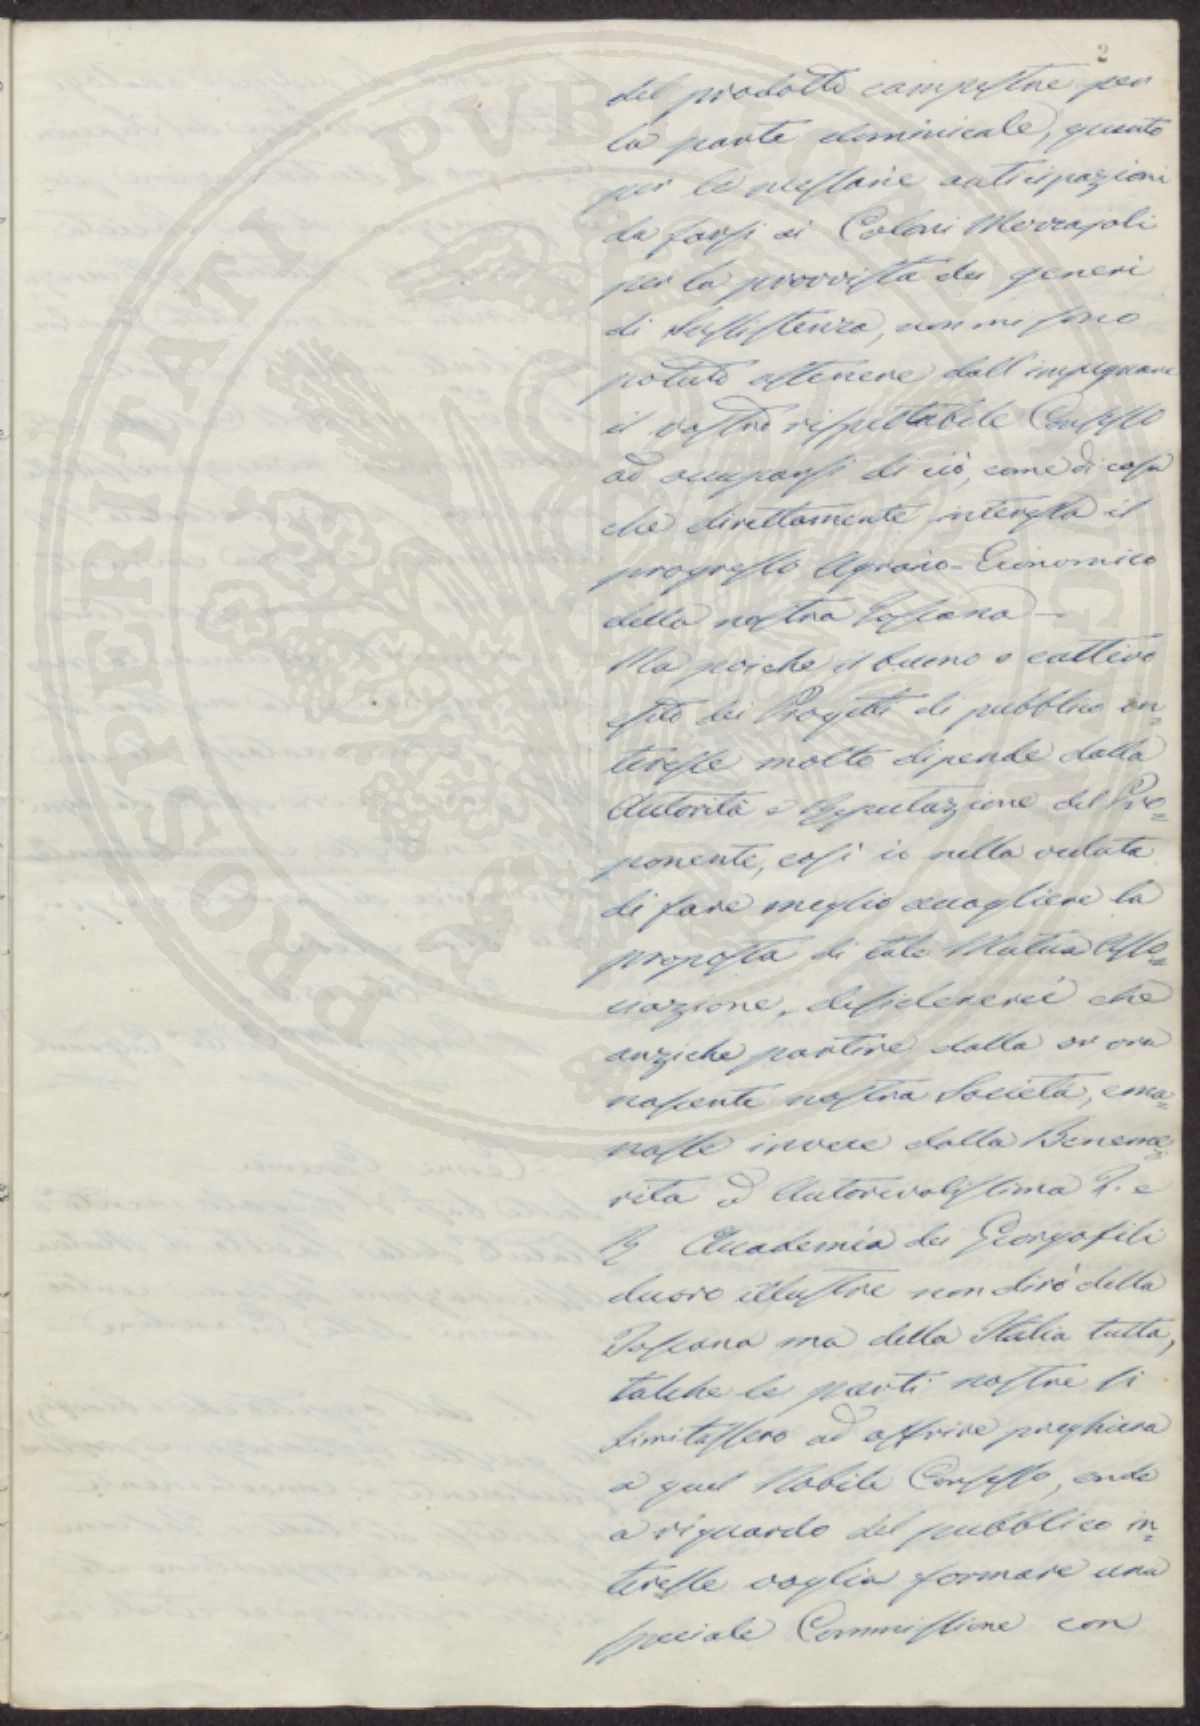 2
del prodotto campestre per
la parte dominicale, quanto
per le necessarie anticipazioni
da farsi ai Coloni Mezzajoli
per la provvista dei generi
di sussistenza, non mi sono
potuto astenere dall'impegnare
il vostro rispettabile Consesso
ad occuparsi di ciò, come di cosa
che direttamente interessa il
progresso Agrario-Economico
della nostra Toscana —
Ma poiche il buono o cattivo
esito dei Progetti di pubblico in=
teresse molto dipende dalla
Autorità e Reputazione del Pro=
ponente, così io nella veduta
di fare meglio accogliere la
proposta di tale Mutua Asso=
ciazione, desidererei che
anziche partire dalla or ora
nascente nostra Società, ema=
nasse invece dalla Beneme=
rita ed Autorevolissima I. e
R. Accademia dei Georgofili
decoro illustre non dirò della
Toscana ma della Italia tutta,
talche le parti nostre si
limitassero ad offrire preghiera
a quel Nobile Consesso, onde
a riguardo del pubblico in=
teresse voglia formare una
speciale Commissione con
PROSPERITATI PUBLICAE AUGENDAE